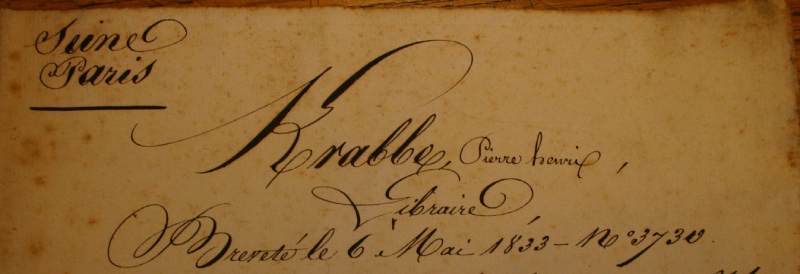 Seine
Paris
Krabbe, Pierre henri,
Libraire,
Breveté le 6 Mai 1833 - No 3730.